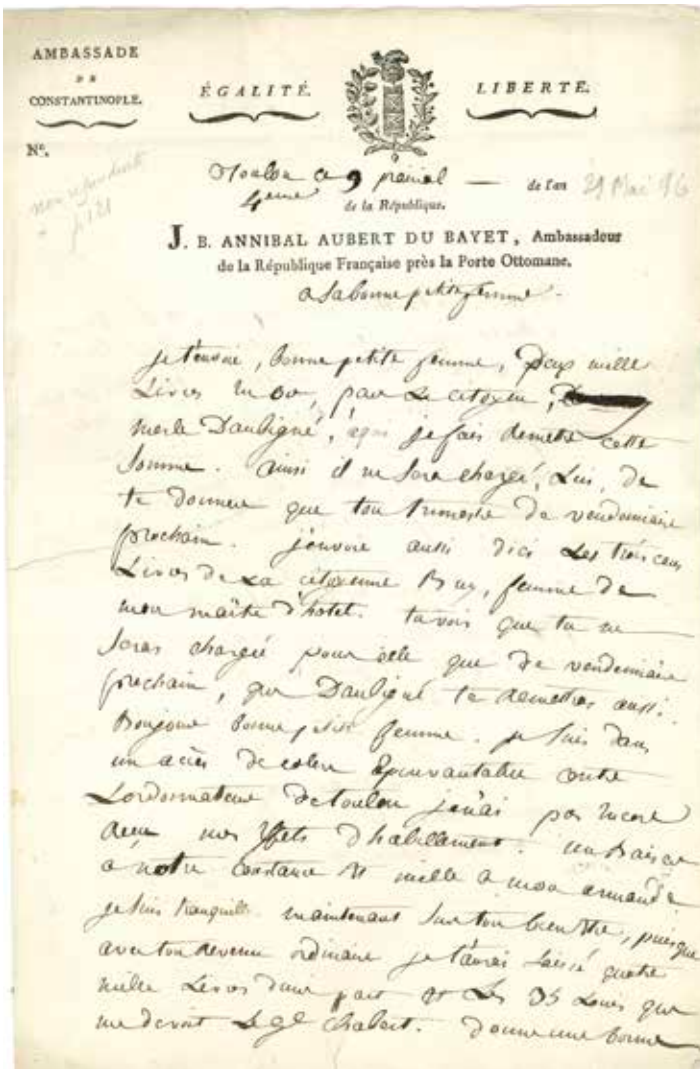 AMBASSADE
DE
CONSTANTINOPLE.
ÉGALITÉ.
LIBERTÉ.
N°.
non répondu
p 121
Toulon ce 9 prairial
4eme
de l'an
29 Mai 96
de la République.
J. B. ANNIBAL AUBERT DU BAYET, Ambassadeur
de la République Française près la Porte Ottomane.
a sa bonne petite femme.
je t'envoie, bonne petite femme, deux mille
Livres en or, par le citoyen,
merle Daubigné, à qui je fais remettre cette
Somme. ainsi il ne sera chargé, Lui, de
te donner que ton trimestre de vendemiaire
prochain. j'envoie aussi d'ici Les trois cens
Livres de La citoyenne Buy, femme de
mon maître d'hotel. tu vois que tu ne
seras chargée pour elle que de vendemiaire
prochain, que Daubigné te remettra aussi.
Bonjour bonne petite femme. je suis dans
un accès de colere Epouvantable contre
L'ordonnateur de toulon je n'ai pas encore
recu mes effets d'habillement. un baiser
a notre constance et mille a mon armande
je suis tranquille maintenant sur ton bien être, puisque
avec ton revenu ordinaire je t'aurai laissé quatre
mille Livres d'une part et Les 35 Louis que
me devoit Le gl Chabert. donne une bonne